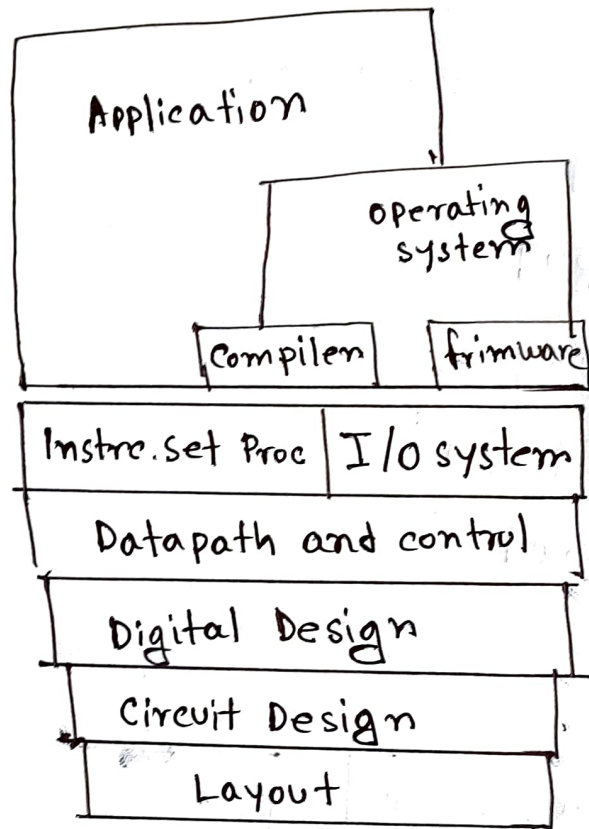 Application
operating
system
Compiler
frimware
Instrc.set Proc
I/O system
Datapath and control
Digital Design
Circuit Design
Layout